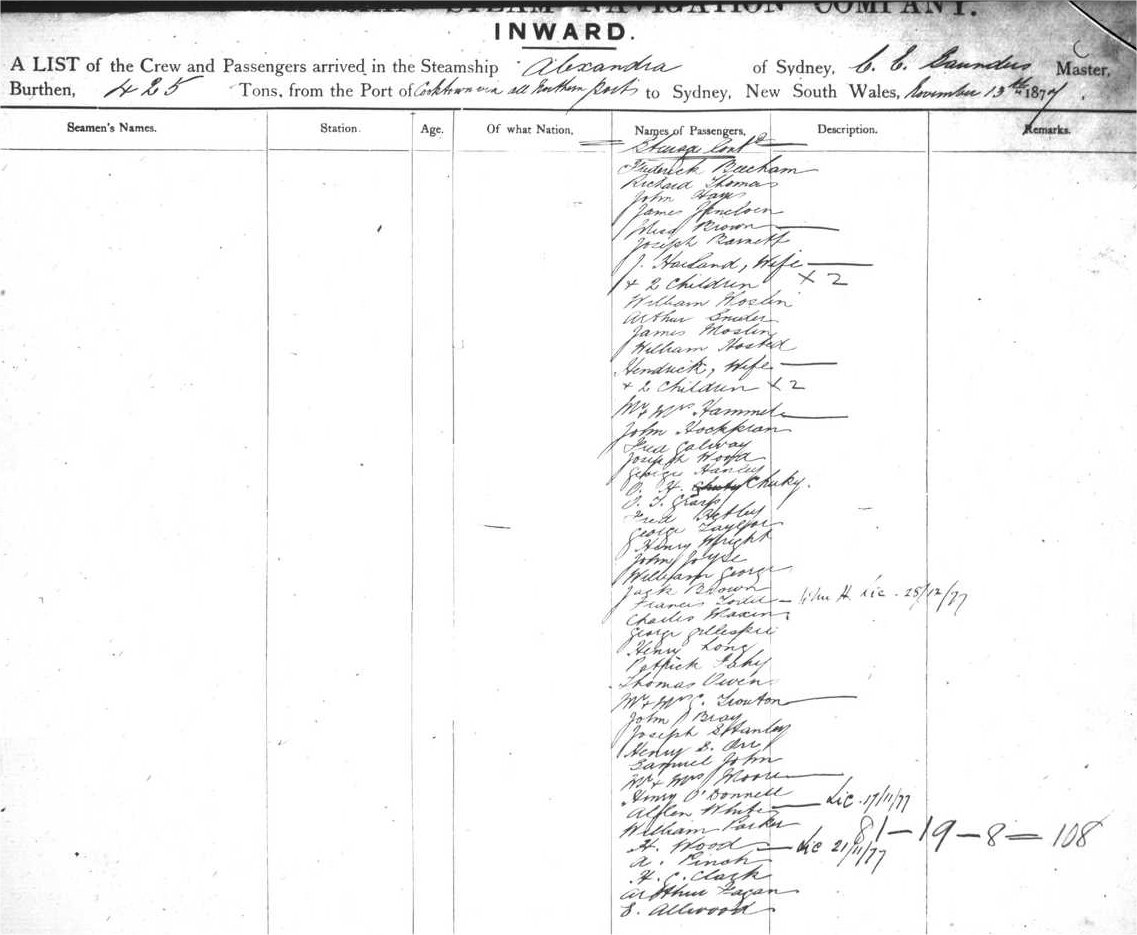 STEAM NAVIGATION COMPANY.
INWARD.
A LIST of the Crew and Passengers arrived in the Steamship Alexandra of Sydney, C. E. Saunders Master,
Burthen, 425 Tons, from the Port of Cooktown via all Northern Ports to Sydney, New South Wales, November 13th 1877.
Seamen's Names. Station. Age. Of what Nation, Names of Passengers, Description. Remarks.
Steerage Contd
Frederick Beecham
Richard Thomas
John Hayes
James
Miss Brown
Joseph Barnett
J. Harland, Wife
+ 2 Children × 2
William Hoslin
Arthur Snider
James Moslin
William Hosted
Hendrick, Wife
+ 2 Children × 2
Mr & Mrs Hammel
John
Fred Galway
Joseph Wood
George Hanley
O. H. Chuky.
O. T.
Fred Hetley
George Taylor
Henry Wright
John Joyse
William George
Jack Brown
Francis - H. Lic. 28/12/77
Charles
George Gillespie
Henry Long
Patrick Fahy
Thomas Owen
Mr & Mrs C. Trouton
John Bray
Joseph Stanley
Henry E. Orr
Samuel John
Mr & Mrs Moore
Henry O'Donnell
White Lic. 17/11/77
William Parker
81 - 19 - 8 = 108
H. Wood Lic 21/11/77
A. Pinch
H. C. Clark
Arthur Fagan
E. Allwood